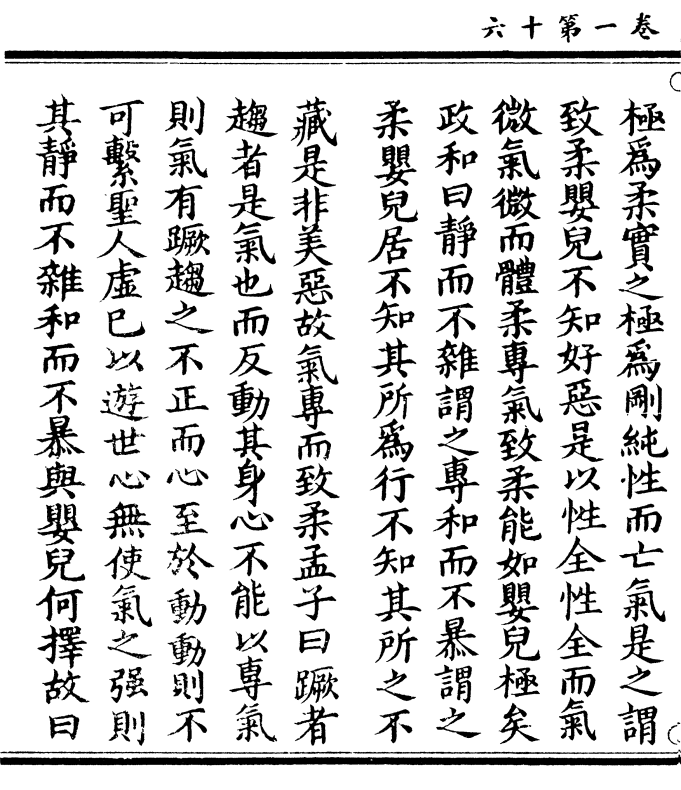 卷一第十六
極爲柔實之極爲剛純性而亡氣是之謂
致柔嬰兒不知好惡是以性全性全而氣
微氣微而體柔專氣致柔能如嬰兒極矣
政和曰靜而不雜謂之專和而不暴謂之
柔嬰兒居不知其所爲行不知其所之不
藏是非美惡故氣專而致柔孟子曰蹶者
趨者是氣也而反動其身心不能以專氣
則氣有蹶趨之不正而心至於動動則不
可繫聖人虛已以遊世心無使氣之强則
其靜而不雜和而不暴與嬰兒何擇故曰